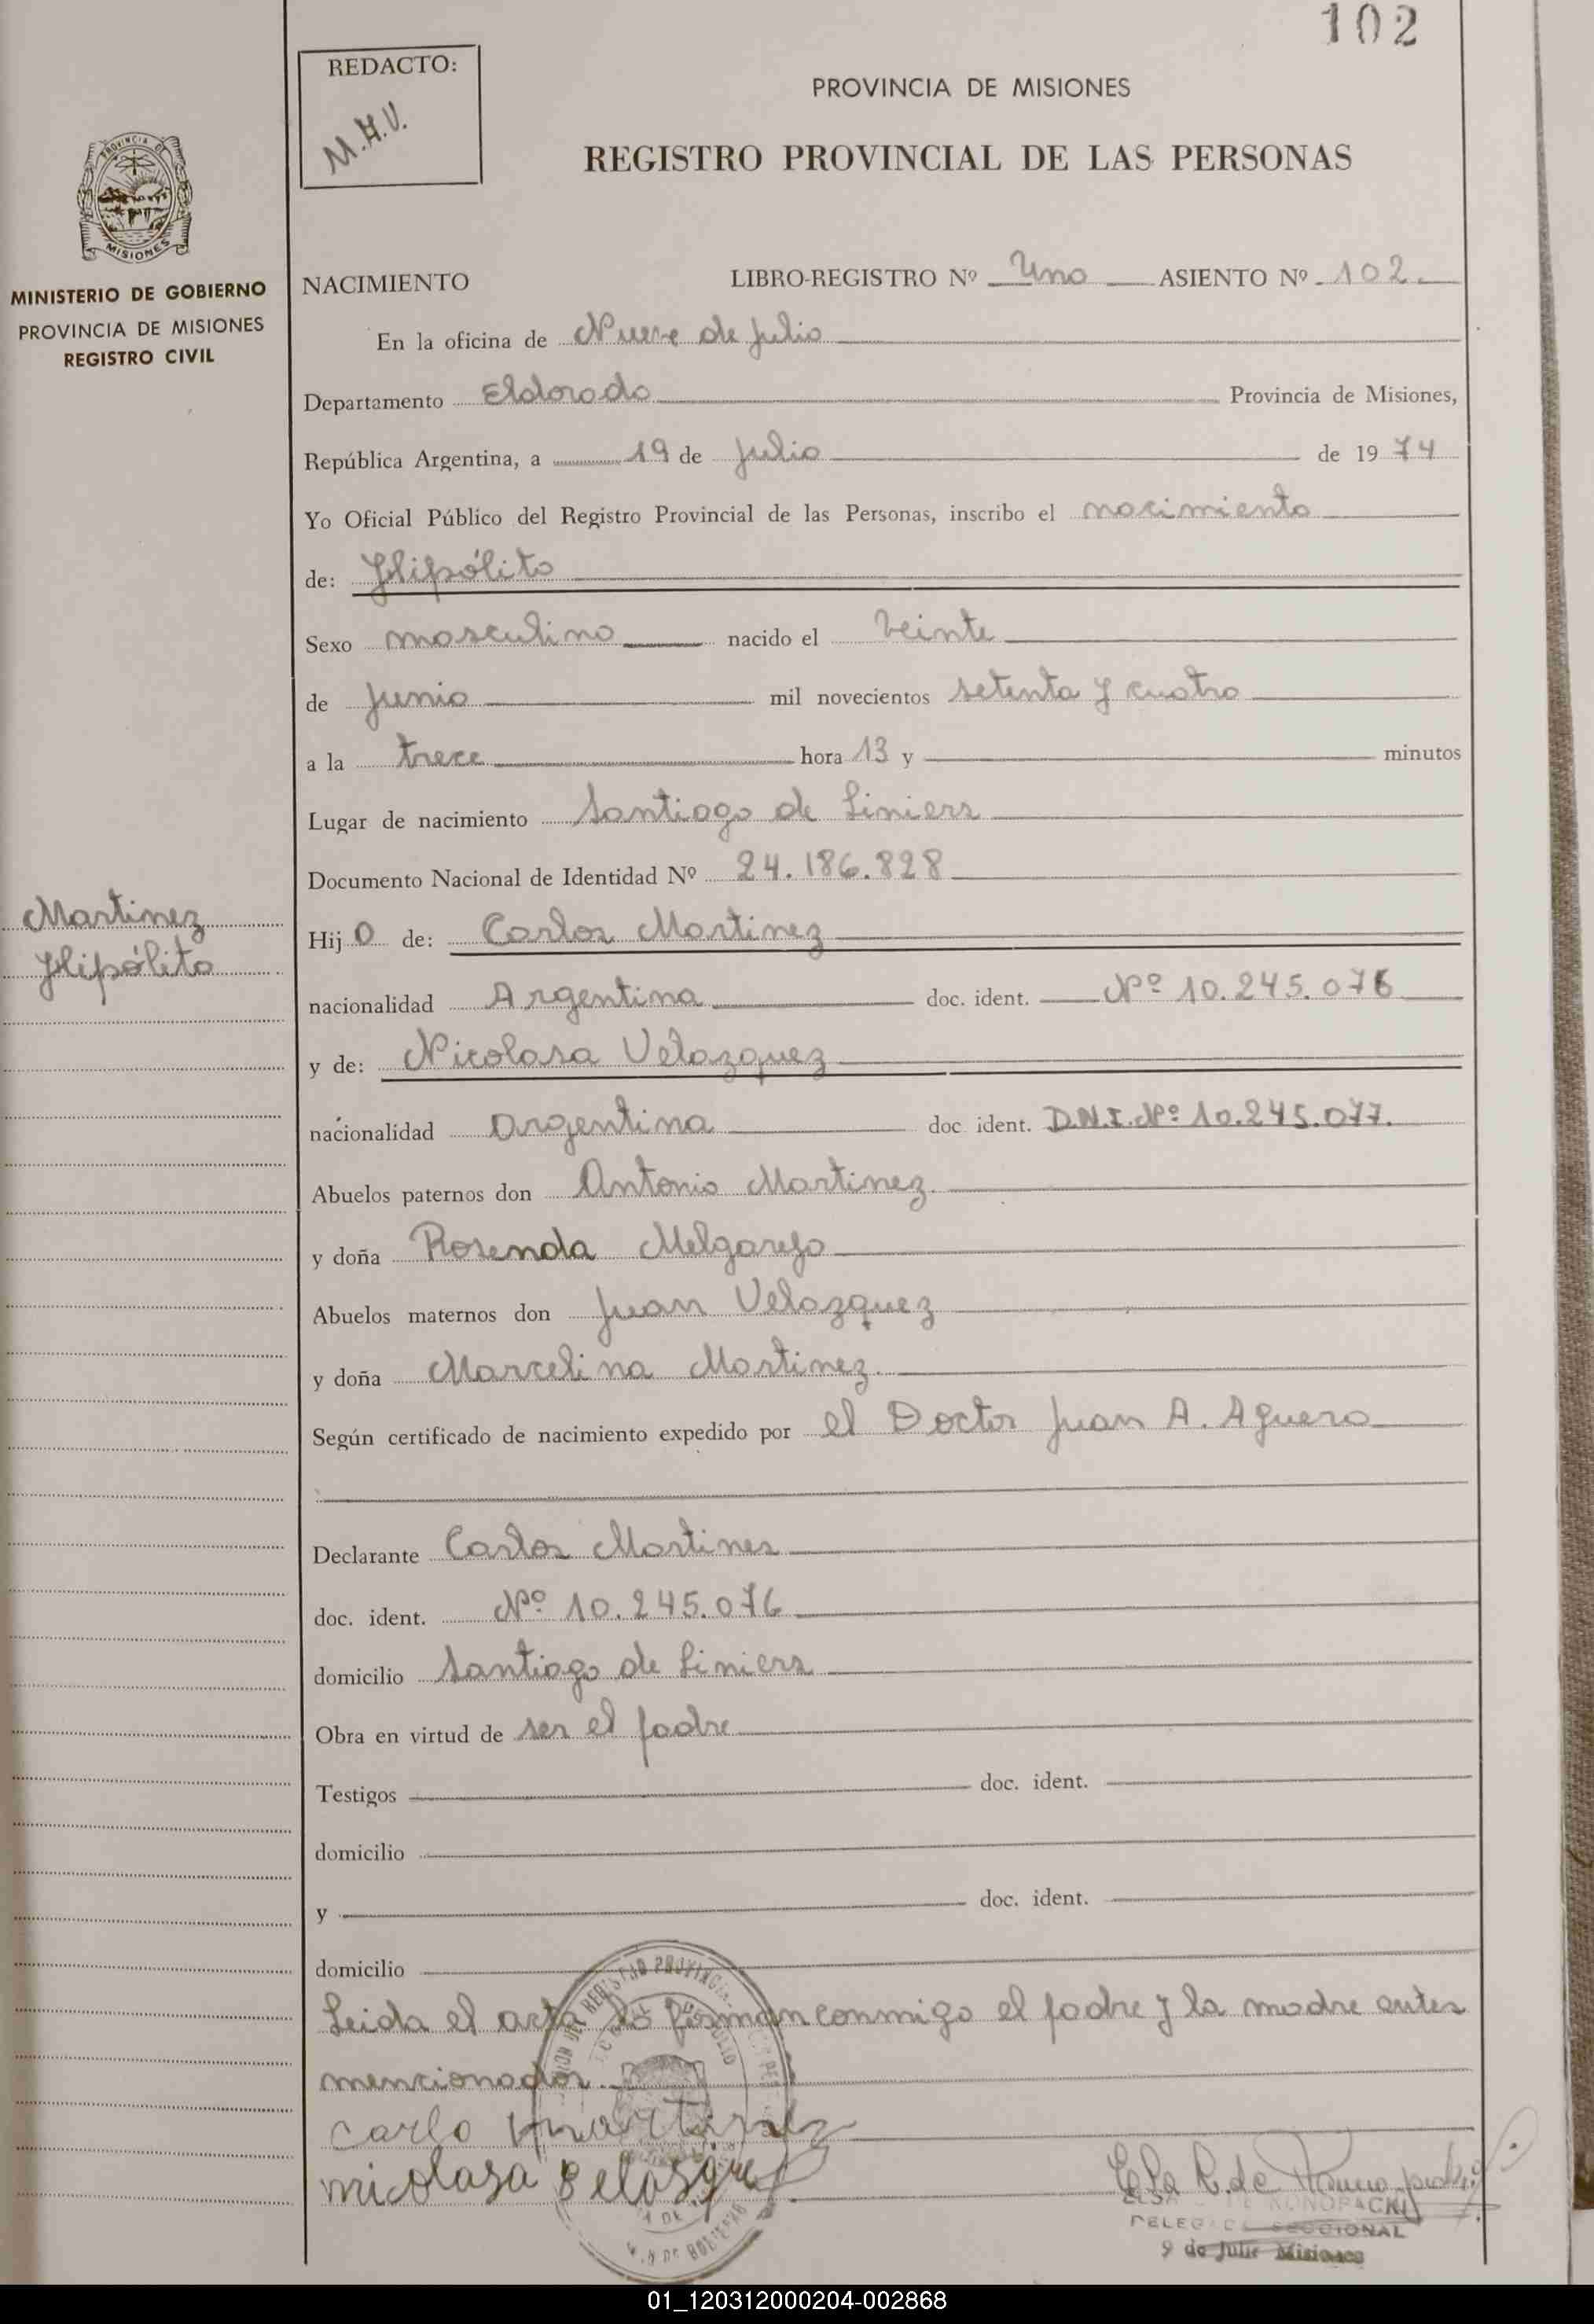 102
REDACTO:
M.H.V.
PROVINCIA DE MISIONES
REGISTRO PROVINCIAL DE LAS PERSONAS
PROVINCIA DE
MISIONES
MINISTERIO DE GOBIERNO
PROVINCIA DE MISIONES
REGISTRO CIVIL
NACIMIENTO LIBRO-REGISTRO Nº Uno ASIENTO Nº 102
En la oficina de Nueve de Julio
Departamento Eldorado Provincia de Misiones,
República Argentina, a 19 de Julio de 1974
Yo Oficial Público del Registro Provincial de las Personas, inscribo el nacimiento
de: Hipólito
Sexo masculino nacido el veinte
de Junio mil novecientos setenta y cuatro
a la trece hora 13 y minutos
Lugar de nacimiento Santiago de Liniers
Documento Nacional de Identidad Nº 24.186.828
Martinez
Hipólito
Hijo de: Carlos Martinez
nacionalidad Argentina doc. ident. Nº 10.245.076
y de: Nicolasa Velazquez
nacionalidad Argentina doc ident. D.N.I. Nº 10.245.077.
Abuelos paternos don Antonio Martinez.
y doña Rosenda Melgarejo
Abuelos maternos don Juan Velazquez
y doña Marcelina Martinez.
Según certificado de nacimiento expedido por el Doctor Juan A. Aguero
Declarante Carlos Martines
doc. ident. Nº 10.245.076
domicilio Santiago de Liniers
Obra en virtud de ser el padre
Testigos doc. ident.
domicilio
y doc. ident.
domicilio
Leida el acta la firman conmigo el padre y la madre antes
mencionados.
carlo martinez
nicolasa Belasques
KONOPACKI
SECCIONAL
9 de Julio Misiones
01_120312000204-002868